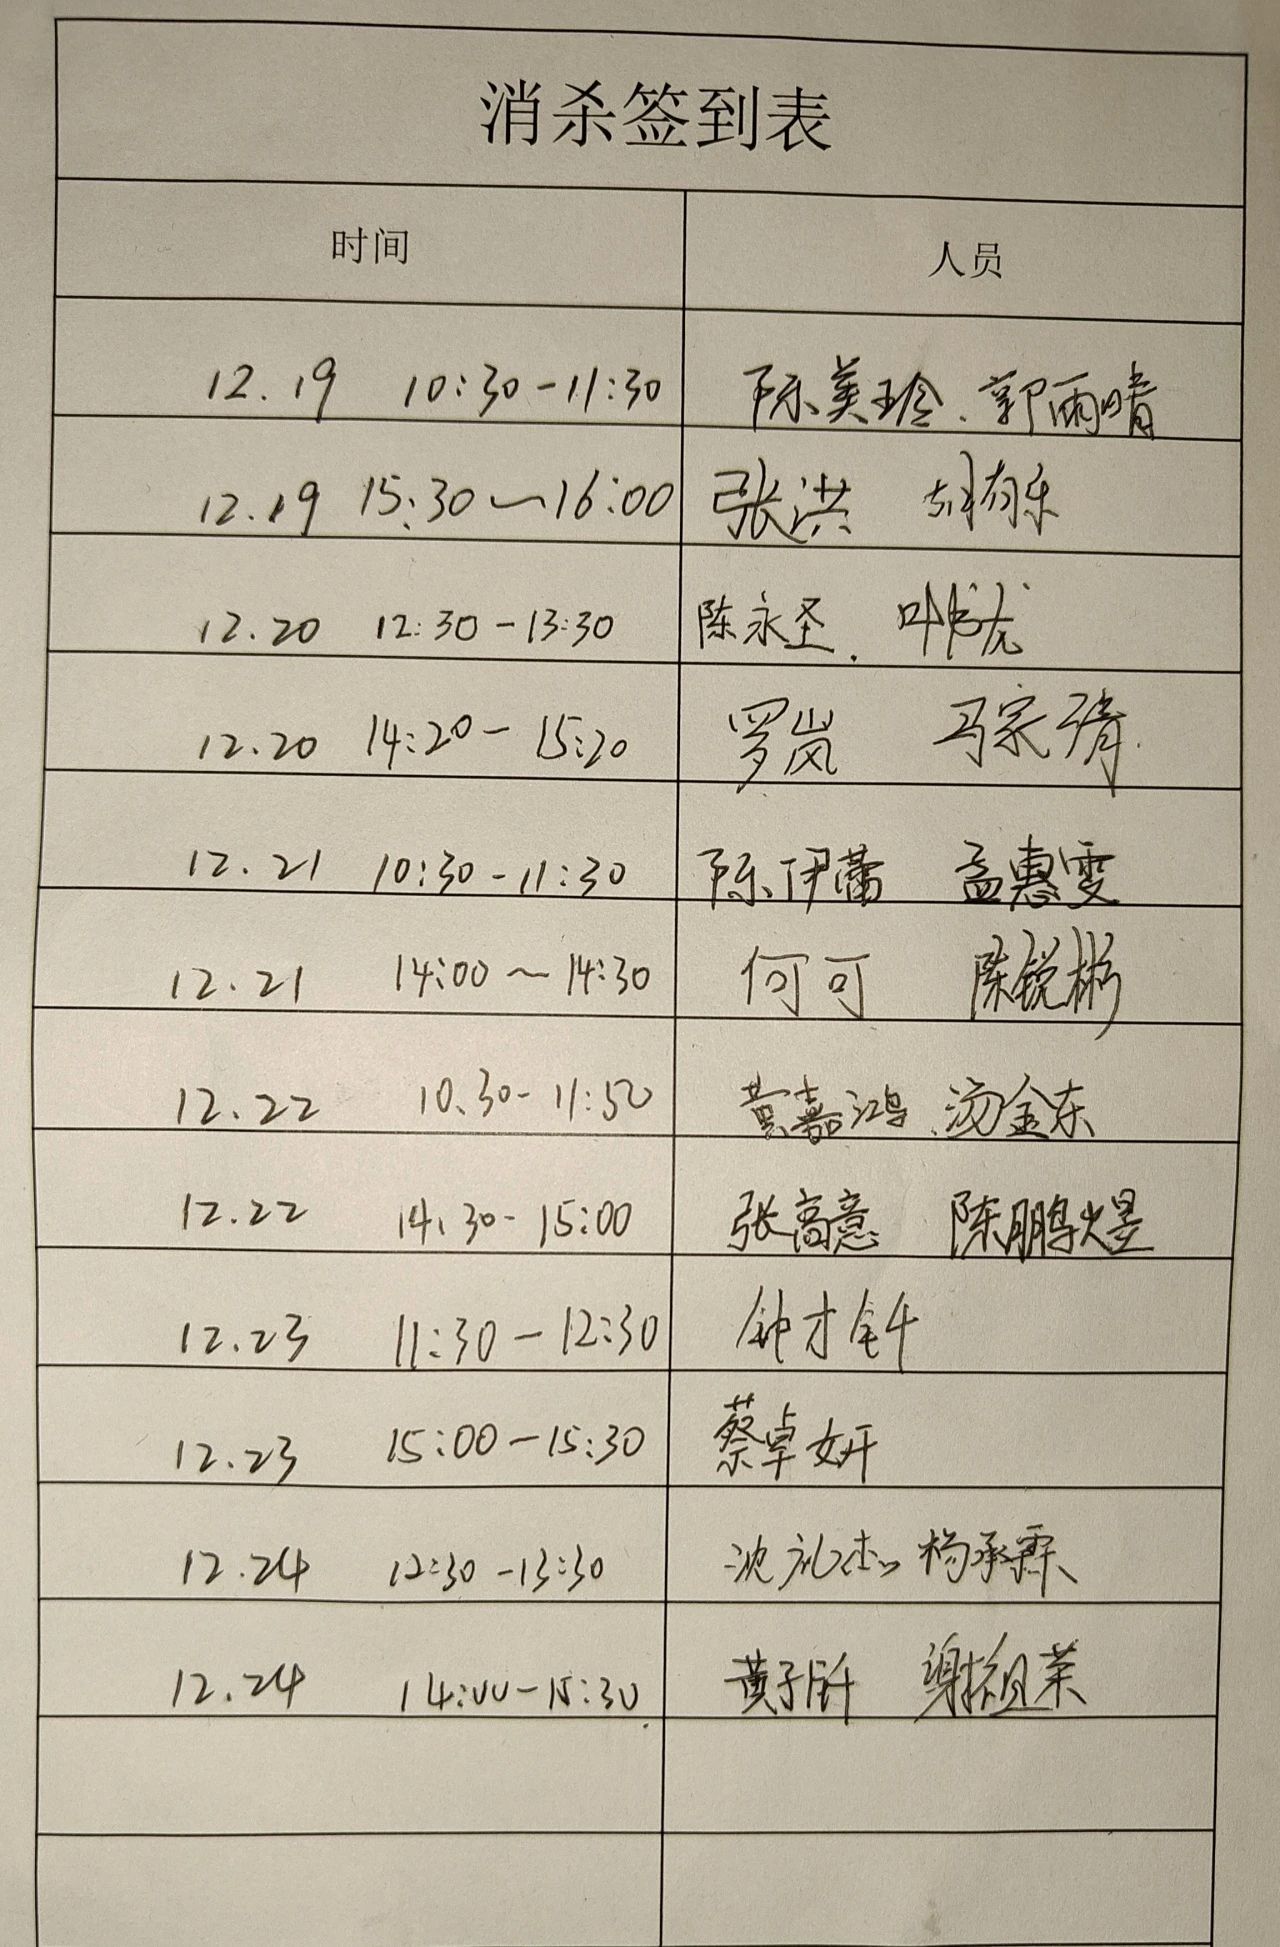 消杀签到表
时间 人员
12.19 10:30-11:30 陈美玲、郭雨晴
12.19 15:30~16:00 张洪 胡有乐
12.20 12:30-13:30 陈永圣、叶书龙
12.20 14:20-15:20 罗岚 冯宗琦
12.21 10:30-11:30 陈伊蕾 孟惠雯
12.21 14:00~14:30 何可 陈锐彬
12.22 10.30-11:50 黄嘉鸿、汤金东
12.22 14.30-15:00 张高意 陈鹏煜
12.23 11:30-12:30 钟才钎
12.23 15:00-15:30 蔡卓妍
12.24 12:30-13:30 沈礼杰 杨承霖
12.24 14:00-15:30 黄子 谢祖荣